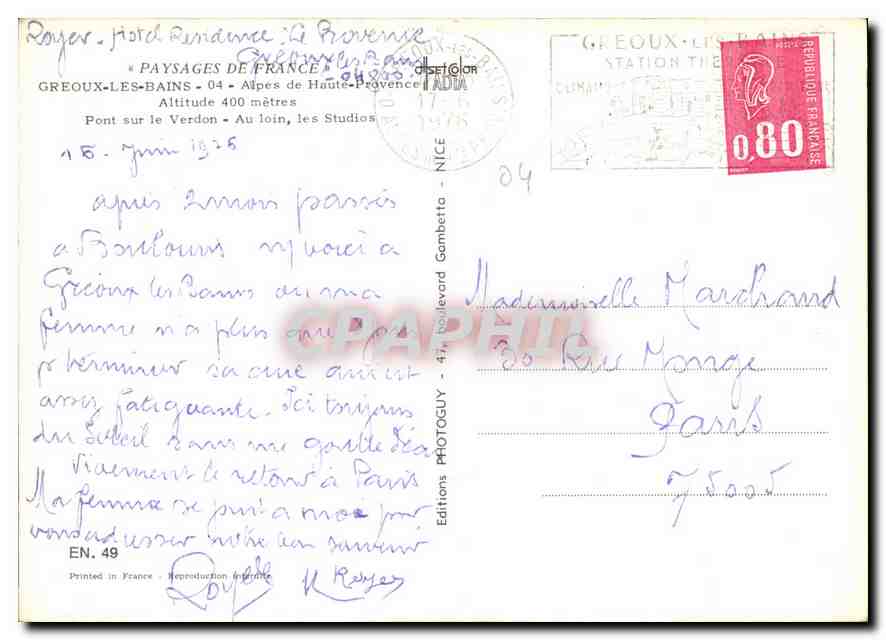 Royer - Hotel Residence : Le Provence
Greoux les Bains
- 04800
« PAYSAGES DE FRANCE »
GREOUX-LES-BAINS - 04 - Alpes de Haute-Provence
Altitude 400 mètres
Pont sur le Verdon - Au loin, les Studios
15 - Juin 1976
après 2 mois passés
a m'y voici a
Gréoux les Bains ou ma
femme n'a plus que
pr terminer sa cure
assez fatiguante. Ici toujours
du Soleil sans une goutte d'eau
Vivement le retour à Paris
Ma femme se joint à moi pour
vous adresser notre bon souvenir
Royer
EN. 49
Printed in France - Reproduction interdite
Editions PHOTOGUY - 47, boulevard Gambetta - NICE
GREOUX-LES-BAINS
17-6
1976
GREOUX-LES-BAINS
STATION
REPUBLIQUE FRANÇAISE
0,80
04
Mademoiselle Marchand
30 Rue Monge
Paris
75005
CPAPHIL